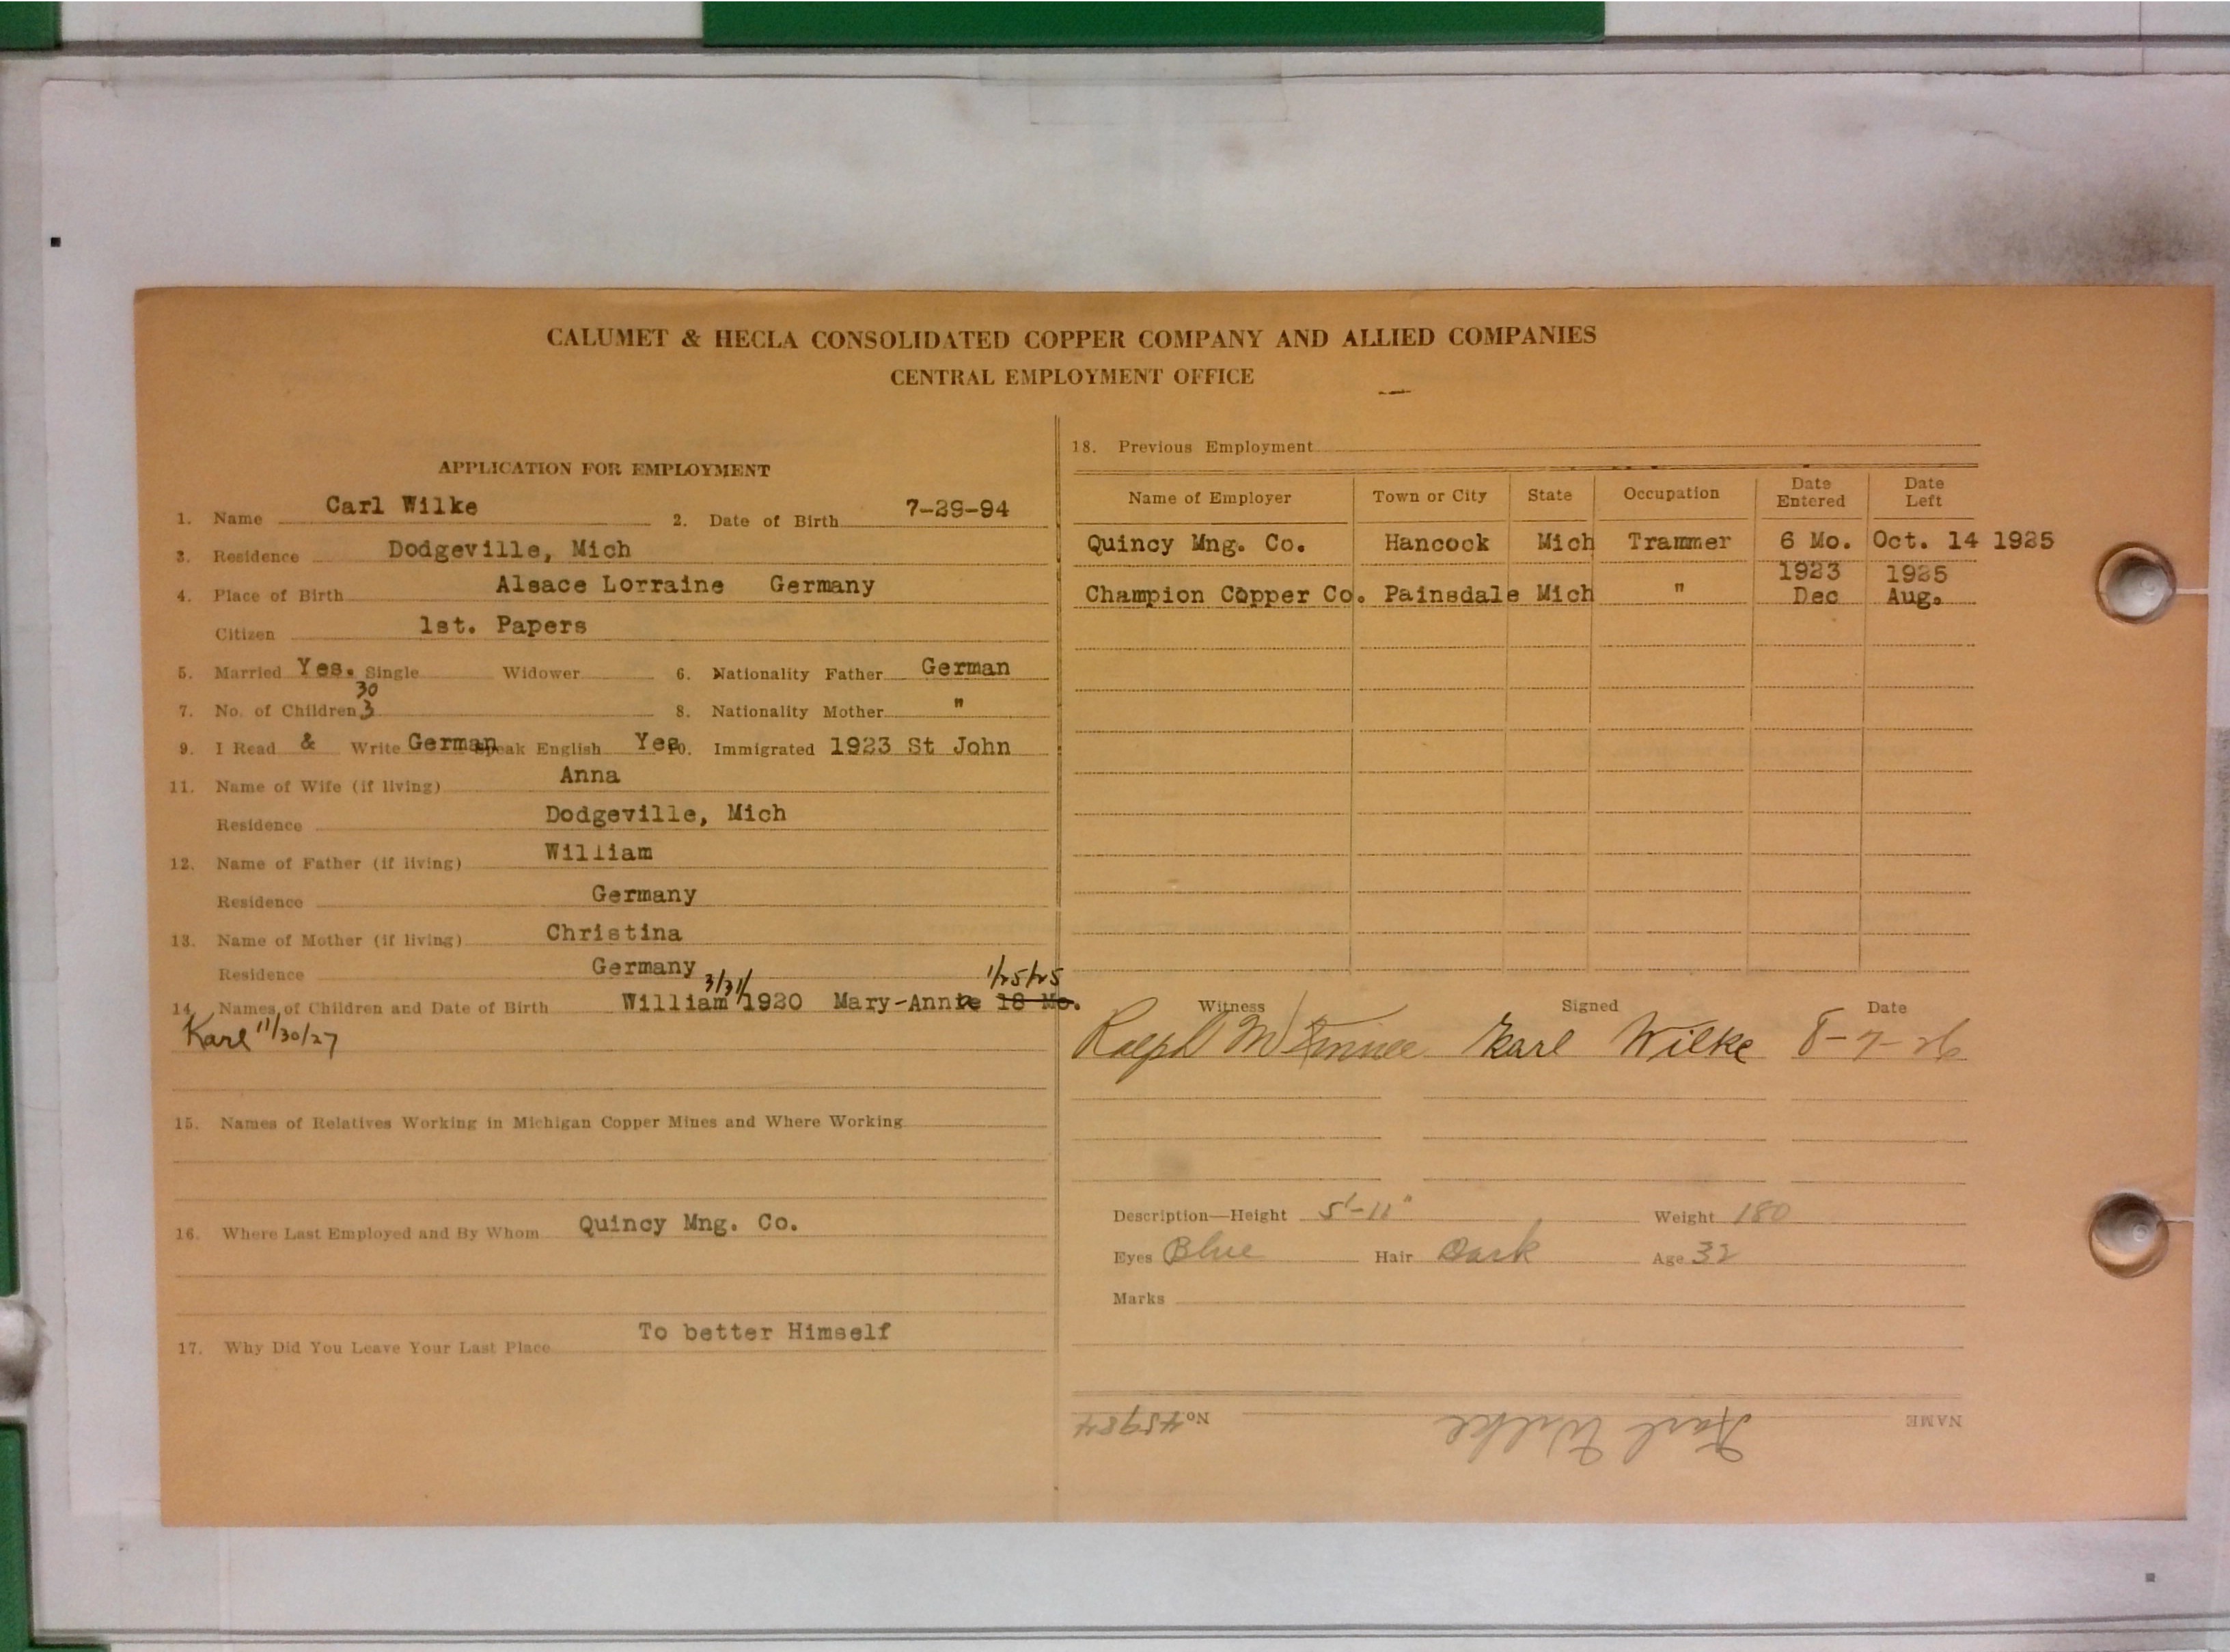 CALUMET & HECLA CONSOLIDATED COPPER COMPANY AND ALLIED COMPANIES
CENTRAL EMPLOYMENT OFFICE
APPLICATION FOR EMPLOYMENT
1. Name Carl Wilke 2. Date of Birth 7-29-94
3. Residence Dodgeville, Mich
4. Place of Birth Alsace Lorraine Germany
Citizen 1st. Papers
5. Married Yes. Single Widower 6. Nationality Father German
30
7. No. of Children 3 8. Nationality Mother "
9. I Read & Write German Speak English Yes 10. Immigrated 1923 St John
11. Name of Wife (if living) Anna
Residence Dodgeville, Mich
12. Name of Father (if living) William
Residence Germany
13. Name of Mother (if living) Christina
Residence Germany
3/31/ 1/25/25
14. Names of Children and Date of Birth William 1920 Mary-Anna 18 Mo.
Karl 11/30/27
15. Names of Relatives Working in Michigan Copper Mines and Where Working
16. Where Last Employed and By Whom Quincy Mng. Co.
17. Why Did You Leave Your Last Place To better Himself
18. Previous Employment
Name of Employer Town or City State Occupation Date Entered Date Left
Quincy Mng. Co. Hancock Mich Trammer 6 Mo. Oct. 14 1925
1923 1925
Champion Copper Co. Painsdale Mich " Dec Aug.
Witness Signed Date
Ralph Karl Wilke 8-7-26
Description—Height 5'-11" Weight 180
Eyes Blue Hair Dark Age 32
Marks
NAME Karl Wilke No 45984